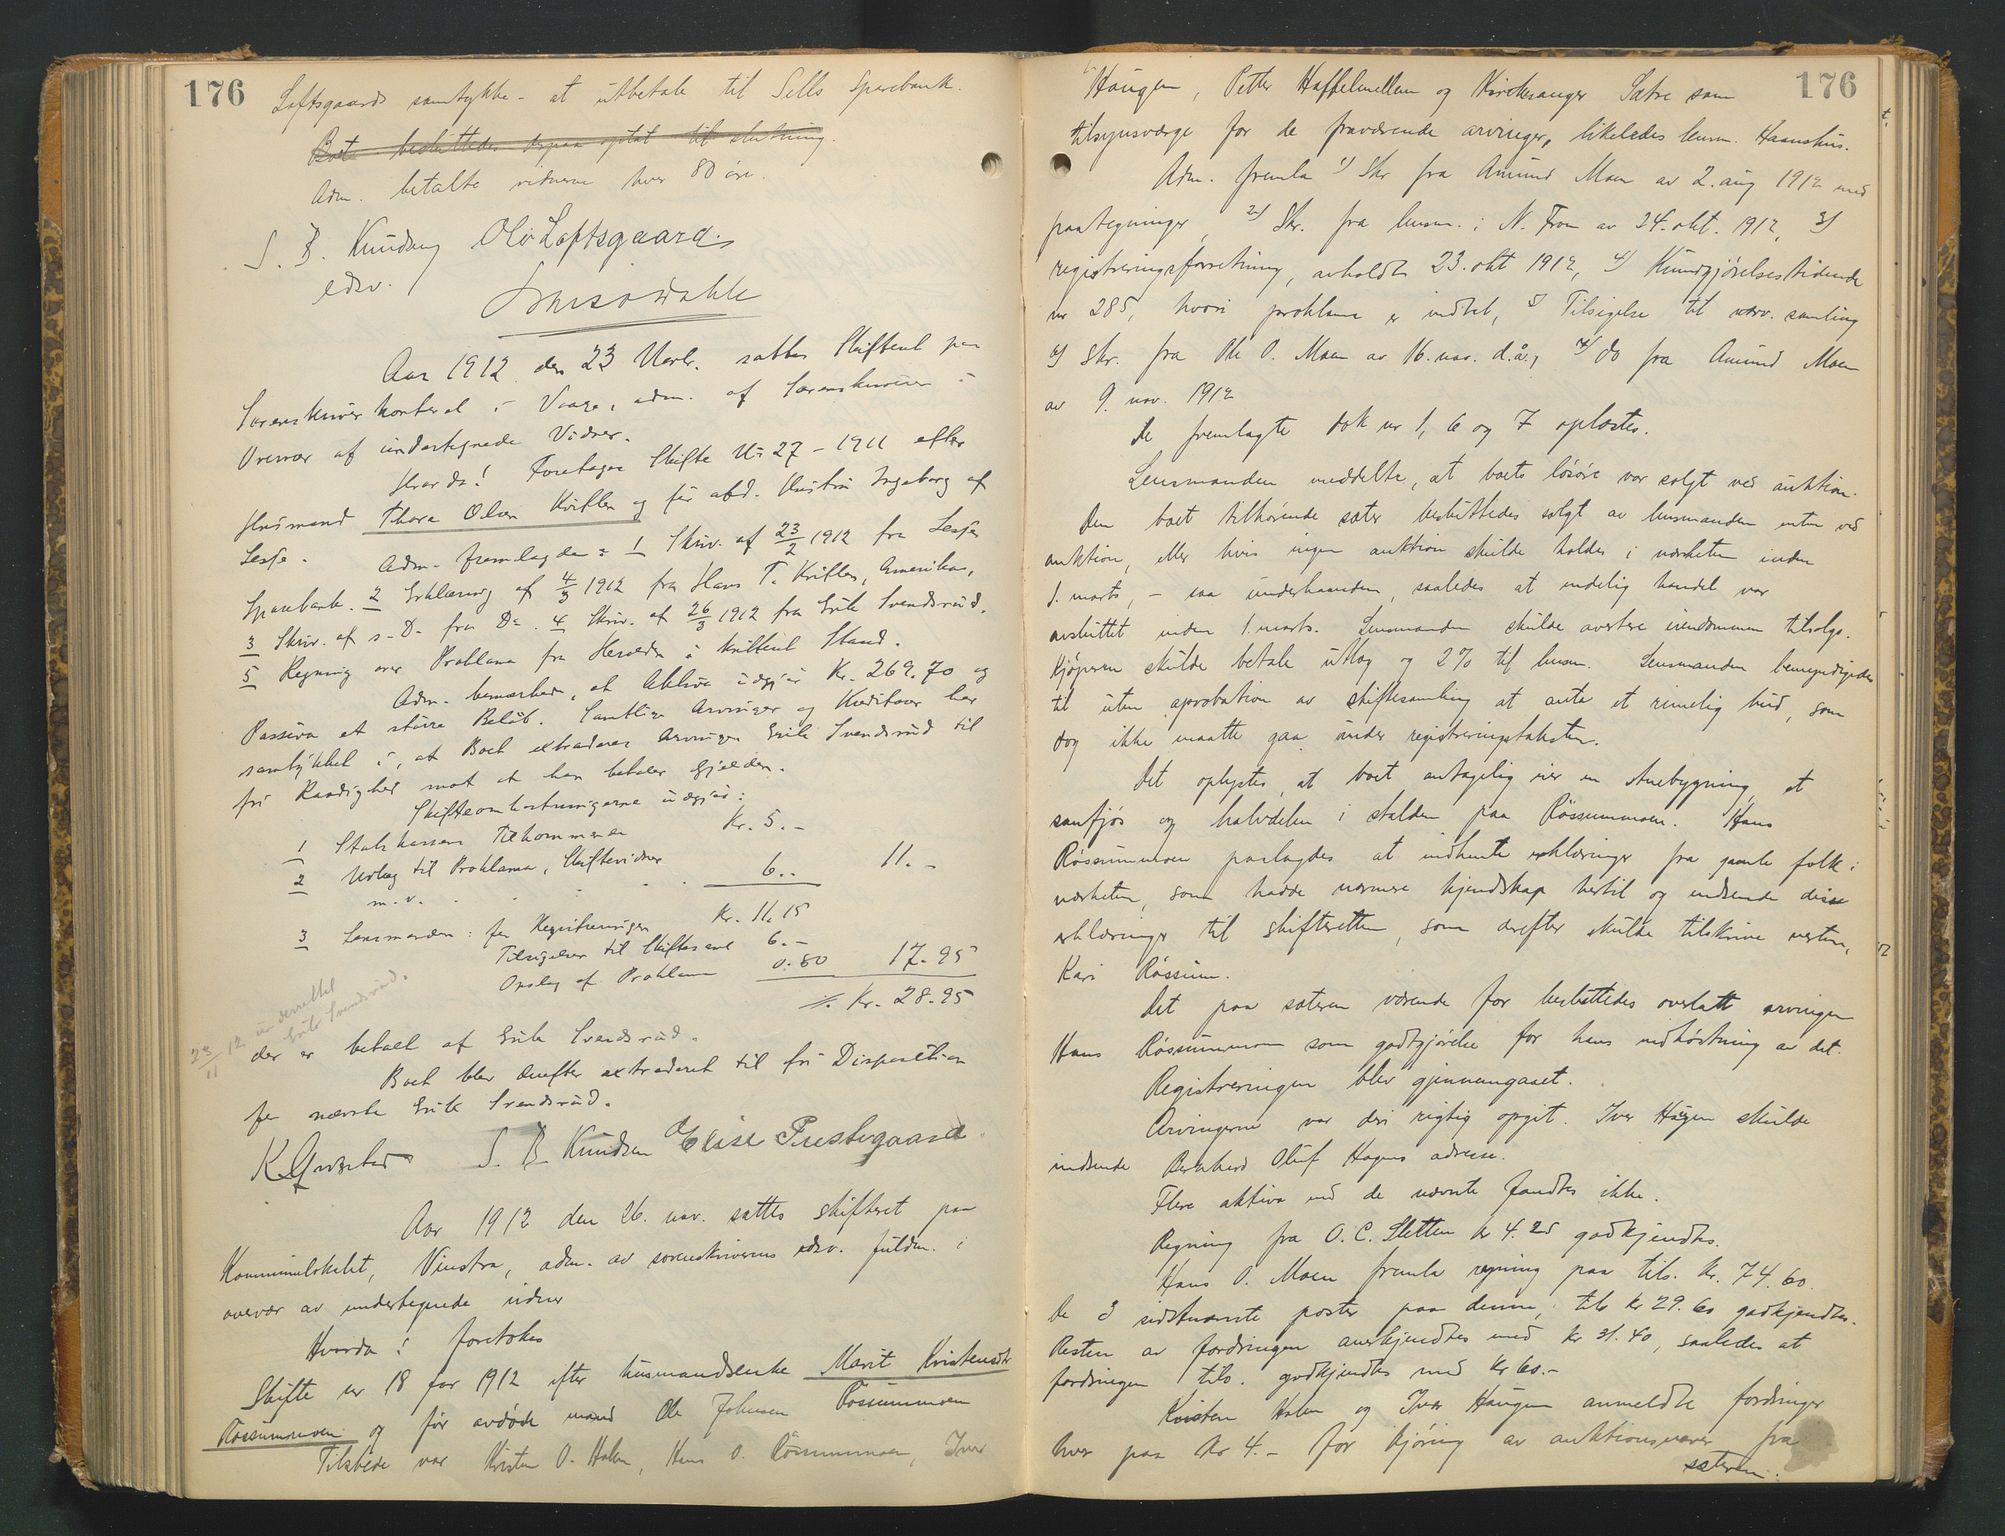 176
Loftsgaards samtykke - at utbetale til Sells Sparebank.
Boet besluttedes derpaa optat til slutning.
Adm. betalte vidnerne hver 80 øre.
S. B. Knudsen Ola Loftsgaard.
edsv.
Aar 1912 den 23 Novbr. sattes Skifteret paa
Sorenskriverkontoret i Vaage, adm. af Sorenskriveren i
Overvær af undertegnede Vidner.
Hvorda! Foretages Skifte No 27 - 1911 efter
Husmand Thore Olsen Kviflen og før afd. Hustru Ingeborg af
Lesje. Adm. fremlagde: 1 Skriv. af 23/2 1912 fra Lesje
Sparebank. 2 Erklæring af 4/3 1912 fra Hans T. Kviflen, Amerika,
3 Skriv. af s. D. fra Do. 4 Skriv. af 26/3 1912 fra Erik Svendsrud.
5 Regning over Proklama fra Herredn i kvitteret Stand.
Adm. bemærked, at Aktiva udgjør Kr. 269.70 og
Passiva et større Beløb. Samtlige Arvinger og Kreditorer har
samtykket i, at Boet extraderes Arvingen Erik Svendsrud til
fri Raadighed mot at han betaler Gjælden.
Skifteomkostningerne udgjør:
1 Statskassens Tilkommende Kr. 5.-
2 Utlæg til Proklama, Skiftevidner
m.v. 6.- 11.-
3 Lensmanden: for Registreringen Kr. 11.15
Tilsigelser til Skiftesaml 6.-
Opslag af Proklama 0.80 17.95
Kr. 28.95
23/11 12 underrettet
Erik Svendsrud.
der er betalt af Erik Svendsrud.
Boet blev derefter extraderet til fri Disposition
for nævnte Erik Svendsrud.
S. B. Knudsen Elise Prestegaard.
Aar 1912 den 26. nov. sattes skifteret paa
Kommunelokalet, Vinstra, adm. av sorenskriverens edsv. fuldm. i
overvær av undertegnede vidner
Hvorda! foretokes
Skifte nr 18 for 1912 efter husmandsenke Marit Kristensdtr
Rossummoen og før avdøde mand Ole Johnsen Rossummoen
Tilstede var Kristen O. Holen, Hans O. Røssummoen, Iver
176
Haugen, Petter Haffelmellem og Kirkesanger Sætre som
tilsynsværge for de fraværende arvinger, likeledes lensm. Haanshus.
Adm. fremla 1) Skr fra Amund Moen av 2. aug 1912 med
paategninger, 2) Skr. fra lensm. i N. Fron av 24. okt. 1912, 3)
registreringsforretning, avholdt 23. okt 1912, 4) Kundgjørelsestidende
nr 285, hvori proklama er indtat, 5) Tilsigelse til nærv. samling
6) Skr. fra Ole O. Moen av 16. nov. d.å., 7) do fra Amund Moen
av 9. nov. 1912
De fremlagte dok nr 1, 6 og 7 oplæstes.
Lensmanden meddelte, at boets løsøre var solgt ved auktion.
Den boet tilhørende sæter besluttedes solgt av lensmanden enten ved
auktion, eller hvis ingen auktion skulde holdes i nærheten inden
1. marts, - saa underhaanden, saaledes at endelig handel var
avsluttet inden 1. marts. Lensmanden skulde avertere eiendommen tilsalgs.
Kjøperen skulde betale utlæg og 2% til lensm. Lensmanden bemyndigedes
til uten aprobation av skiftesamling at anta et rimelig bud, som
dog ikke maatte gaa under registreringstaksten.
Det oplystes, at boet antagelig eier en stuebygning, et
saufjøs og halvdelen i stalden paa Røssummoen. Hans
Røssummoen paalagdes at indhente erklæringer fra gamle folk i
nærheten, som hadde nærmere kjendskap hertil og indsende disse
erklæringer til skifteretten, som derefter skulde tilskrive verten,
Kari Røssum.
Det paa sæteren værende for besluttedes overlatt arvingen
Hans Røssummoen som godtgjørelse for hans indhøstning av det.
Registreringen blev gjennemgaaet.
Arvingerne var deri rigtig opgit. Iver Hagen skulde
indsende Bernhard Oluf Hagens adresse.
Flere aktiva end de nævnte fandtes ikke.
Regning fra O. C. Sletten kr 4.25 godkjendtes.
Hans O. Moen fremla regning paa tils. kr. 74.60.
De 3 sidstnævnte poster paa denne, tils kr 29.60 godkjendtes.
Resten av fordringen anerkjendtes med kr 31.40, saaledes at
fordringen tils. godkjendtes med kr 60.-
Kristen Holen og Iver Haugen anmeldte fordringer
hver paa kr 4.- for kjøring av auktionsvarer fra
sæteren.